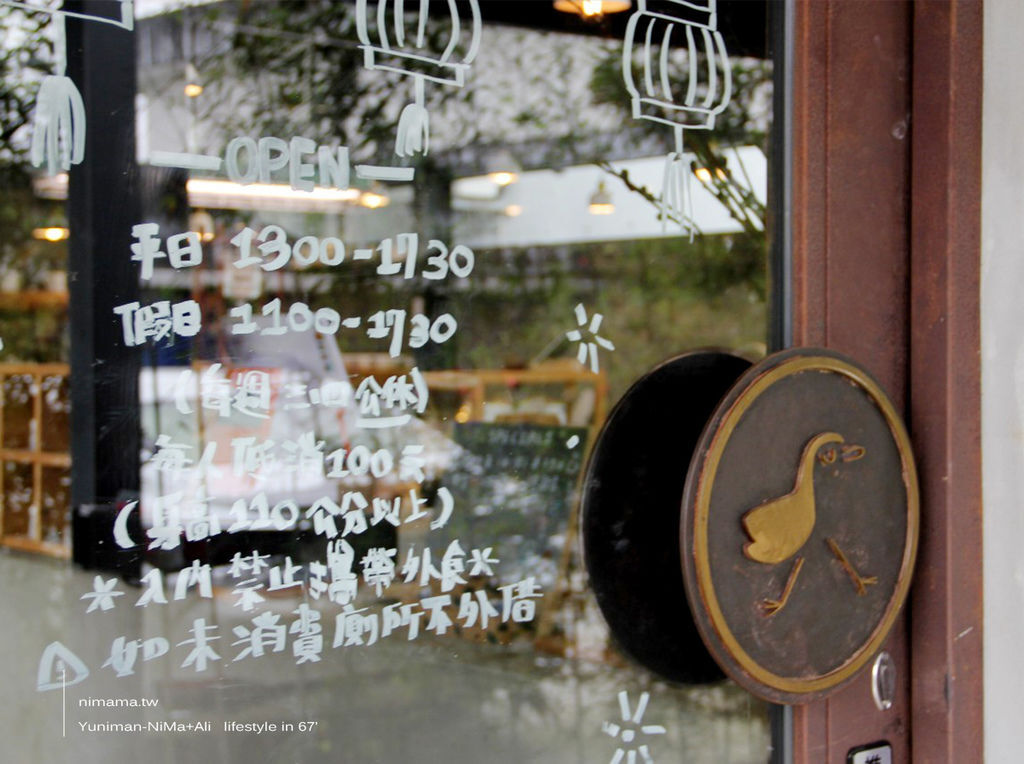 OPEN
平日 1300-1730
假日 1100-1730
(每週三四公休)
每人低消100元
(身高110公分以上)
*入內禁止攜帶外食*
如未消費廁所不外借
nimama.tw
Yuniman-NiMa+Ali lifestyle in 67'